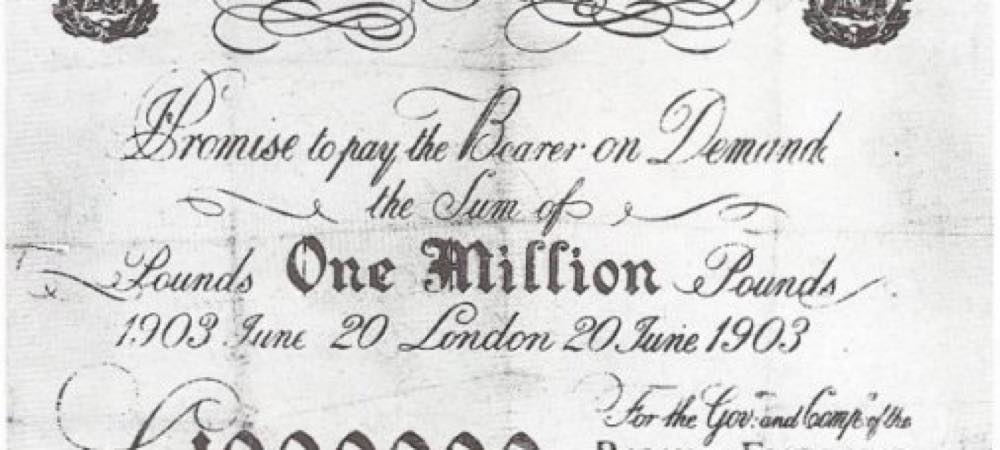 I Promise to pay the Bearer on Demand
the Sum of
Pounds One Million Pounds
1903 June 20 London 20 June 1903
For the Gov: and Comp: of the